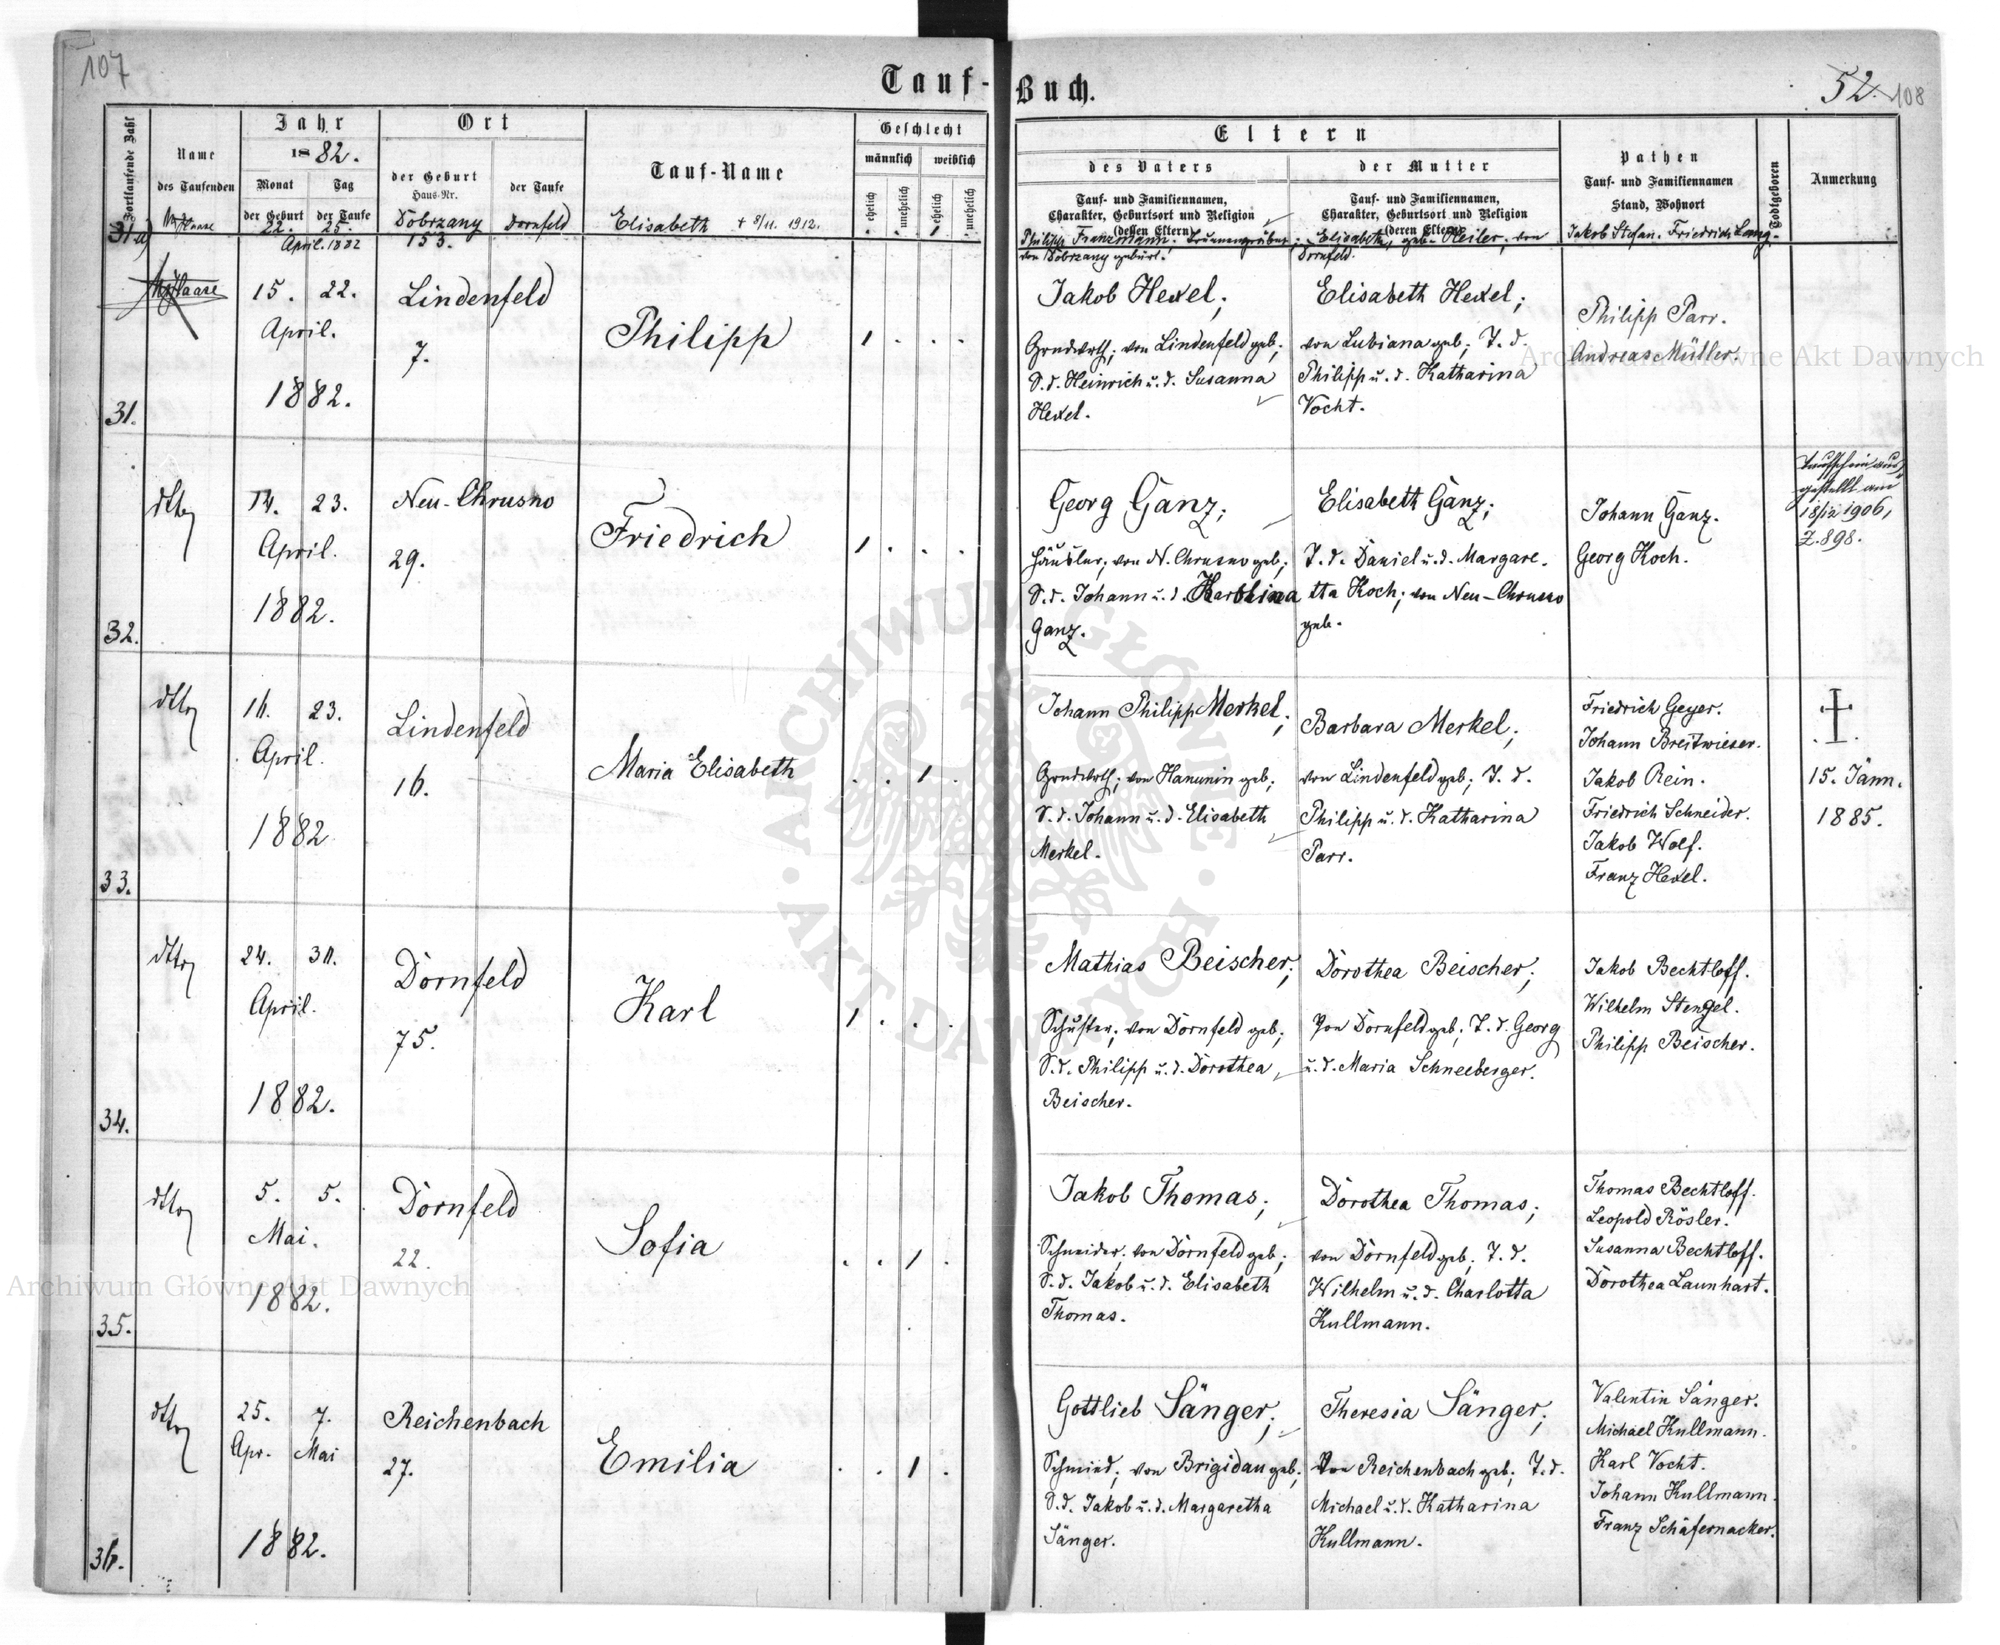 107
Tauf-Buch.
52. 108
Fortlaufende Zahl
Name
des Taufenden
Jahr
1882.
Monat
Tag
der Geburt
der Taufe
Ort
der Geburt
Haus-Nr.
der Taufe
Tauf-Name
Geschlecht
männlich
weiblich
ehelich
unehelich
ehelich
unehelich
Eltern
des Vaters
der Mutter
Tauf- und Familiennamen,
Charakter, Geburtsort und Religion
(dessen Eltern)
Tauf- und Familiennamen,
Charakter, Geburtsort und Religion
(deren Eltern)
Pathen
Tauf- und Familiennamen
Stand, Wohnort
Todtgeboren
Anmerkung
31a)
Haase
22. 25.
April. 1882
Dobrzany
153.
Dornfeld
Elisabeth + 8/11. 1912.
Philipp Franzmann. Brunnengräber;
von Dobrzany gebürt.
Elisabeth, geb. Heiler, von
Dornfeld.
Jakob Stefan. Friedrich Lang.
31.
Haase
15. 22.
April.
1882.
Lindenfeld
7.
Philipp
1 . . .
Jakob Hexel;
Grndwrth; von Lindenfeld geb;
S. d. Heinrich u. d. Susanna
Hexel.
Elisabeth Hexel;
von Lubiana geb; T. d.
Philipp u. d. Katharina
Vocht.
Philipp Parr.
Andreas Müller.
32.
dtto
14. 23.
April.
1882.
Neu-Chrusno
29.
Friedrich
1 . . .
Georg Ganz;
Häusler, von N. Chrusno geb;
S. d. Johann u. d. Karolina
Ganz.
Elisabeth Ganz;
T. d. Daniel u. d. Margare-
tta Koch; von Neu-Chrusno
geb.
Johann Ganz.
Georg Koch.
Taufschein aus-
gestellt am
18/ 1906,
Z. 898.
33.
dtto
16. 23.
April.
1882
Lindenfeld
16.
Maria Elisabeth
. . 1 .
Johann Philipp Merkel;
Grndwrth; von Hanunin geb;
S. d. Johann u. d. Elisabeth
Merkel.
Barbara Merkel;
von Lindenfeld geb; T. d.
Philipp u. d. Katharina
Parr.
Friedrich Geyer.
Johann Breitwieser.
Jakob Rein.
Friedrich Schneider.
Jakob Wolf.
Franz Hexel.
15. Jänn.
1885.
34.
dtto
24. 30.
April.
1882.
Dornfeld
75.
Karl
1 . . .
Mathias Beischer;
Schuster; von Dornfeld geb;
S. d. Philipp u. d. Dorothea
Beischer.
Dorothea Beischer;
Von Dornfeld geb; T. d. Georg
u. d. Maria Schneeberger.
Jakob Bechtloff.
Wilhelm Stengel.
Philipp Beischer.
35.
dtto
5. 5.
Mai.
1882.
Dornfeld
22.
Sofia
. . 1 .
Jakob Thomas;
Schneider; von Dornfeld geb;
S. d. Jakob u. d. Elisabeth
Thomas.
Dorothea Thomas;
von Dornfeld geb; T. d.
Wilhelm u. d. Charlotta
Kullmann.
Thomas Bechtloff.
Leopold Rösler.
Susanna Bechtloff.
Dorothea Launhart.
36.
dtto
25. 7.
Apr. Mai
1882.
Reichenbach
27.
Emilia
. . 1 .
Gottlieb Sänger;
Schmied; von Brigidau geb;
S. d. Jakob u. d. Margaretha
Sänger.
Theresia Sänger;
Von Reichenbach geb; T. d.
Michael u. d. Katharina
Kullmann.
Valentin Sänger.
Michael Kullmann.
Karl Vocht.
Johann Kullmann.
Franz Schäfernacker.
Archiwum Główne Akt Dawnych
Archiwum Główne Akt Dawnych
ARCHIWUM GŁÓWNE AKT DAWNYCH